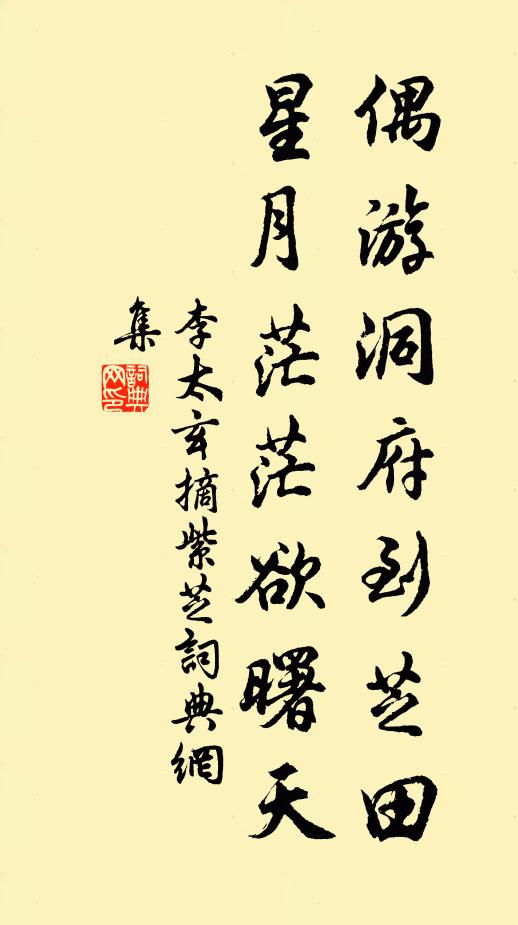 偶游洞府到芝田
星月茫茫欲曙天
李太玄摘紫芝詞典網
集
詞典
网印